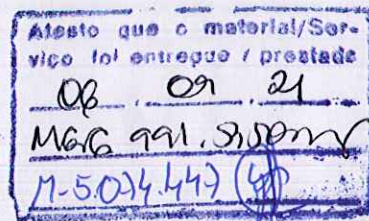 Atesto que o material/Ser-
viço foi entregue / prestado
06 . 09 . 21
M-5.074.447